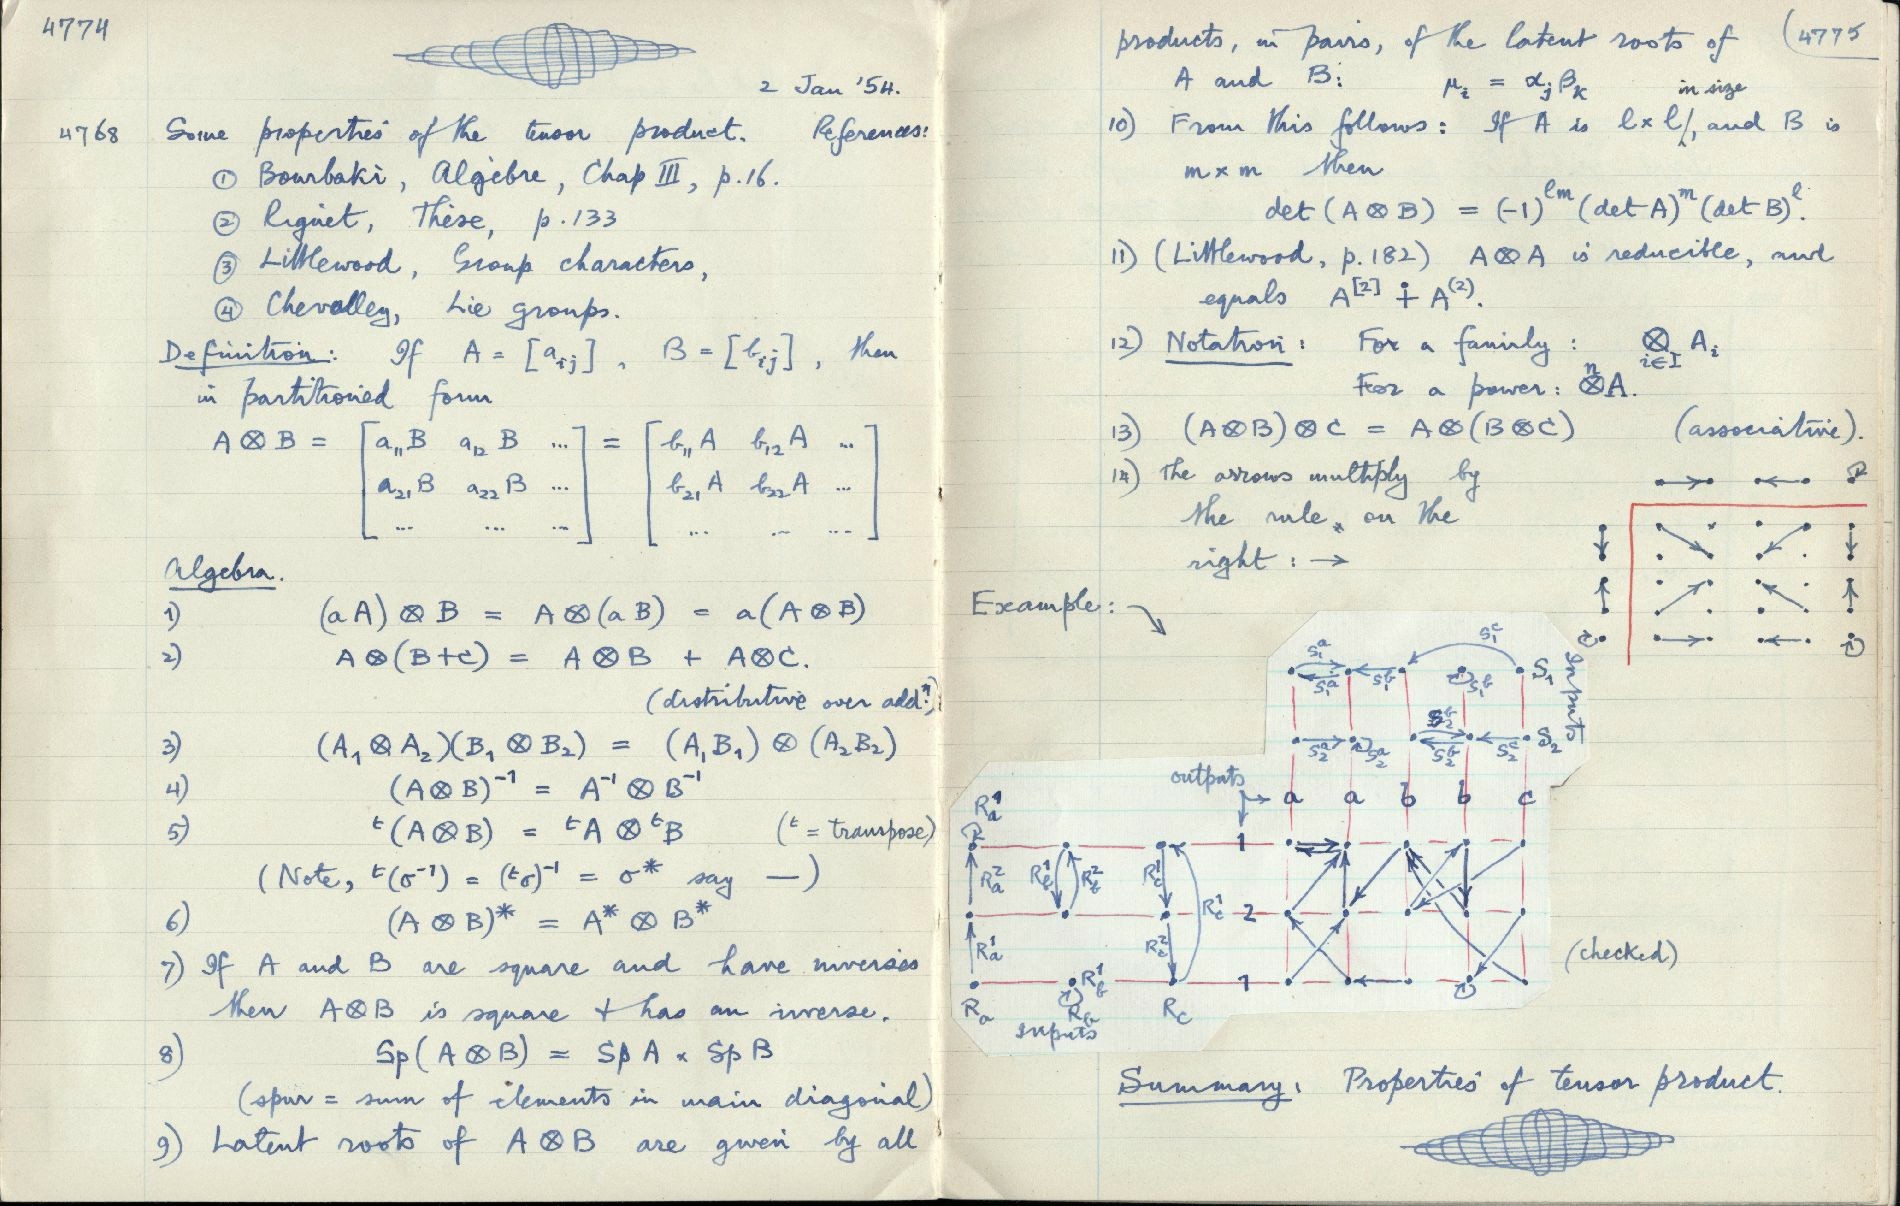 4774
2 Jan '54.
4768 Some properties of the tensor product. References:
① Bourbaki, Algèbre, Chap III, p.16.
② Riguet, Thèse, p.133
③ Littlewood, Group characters,
④ Chevalley, Lie groups.
Definition: If A = [aᵢⱼ], B = [bᵢⱼ], then
in partitioned form
A ⊗ B = [a₁₁B a₁₂B ... = [b₁₁A b₁₂A ...
a₂₁B a₂₂B ... b₂₁A b₂₂A ...
... ... ...] ... ... ...]
Algebra.
1) (aA) ⊗ B = A ⊗ (aB) = a(A ⊗ B)
2) A ⊗ (B+C) = A ⊗ B + A ⊗ C.
(distributive over addⁿ)
3) (A₁ ⊗ A₂)(B₁ ⊗ B₂) = (A₁B₁) ⊗ (A₂B₂)
4) (A ⊗ B)⁻¹ = A⁻¹ ⊗ B⁻¹
5) ᵗ(A ⊗ B) = ᵗA ⊗ ᵗB (ᵗ = transpose)
(Note, ᵗ(σ⁻¹) = (ᵗσ)⁻¹ = σ* say —)
6) (A ⊗ B)* = A* ⊗ B*
7) If A and B are square and have inverses
then A ⊗ B is square + has an inverse.
8) Sp(A ⊗ B) = Sp A × Sp B
(spur = sum of elements in main diagonal)
9) Latent roots of A ⊗ B are given by all
4775
products, in pairs, of the latent roots of
A and B: μᵢ = αⱼβₖ
10) From this follows: If A is l × l in size, and B is
m × m then
det (A ⊗ B) = (-1)ˡᵐ (det A)ᵐ (det B)ˡ.
11) (Littlewood, p.182) A ⊗ A is reducible, and
equals A^[2] ∔ A^(2).
12) Notation: For a family: ⊗ Aᵢ
i∈I
For a power: ⁿ⊗A.
13) (A ⊗ B) ⊗ C = A ⊗ (B ⊗ C) (associative).
14) The arrows multiply by
the rule, on the
right: →
Example:
S₁ᵃ S₁ᶜ
S₁ᵃ S₁ᵇ S₁ᵇ S₁
Inputs
S₂ᵇ
S₂ᵃ S₂ᵃ S₂ᵇ S₂ᶜ S₂
outputs
a a b b c
Rₐ¹
1
Rₐ² R_b¹ R_b² R_c¹
R_c¹
2
Rₐ¹ R_c²
R_b¹
1
Rₐ R_b R_c
Inputs
(checked)
Summary: Properties of tensor product.